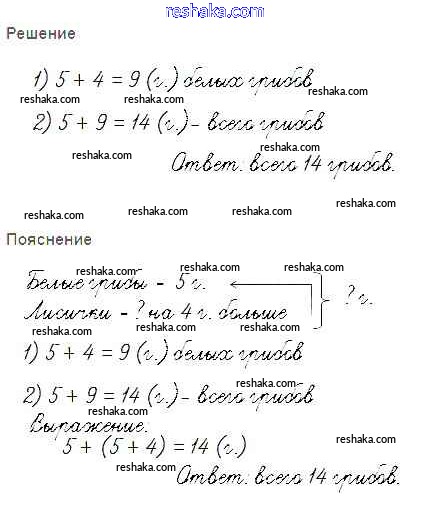 reshaka.com
Решение
1) 5 + 4 = 9 (г.) белых грибов
reshaka.com reshaka.com reshaka.com
2) 5 + 9 = 14 (г.) - всего грибов
reshaka.com reshaka.com
Ответ: всего 14 грибов.
reshaka.com reshaka.com reshaka.com reshaka.com
Пояснение
reshaka.com reshaka.com reshaka.com
Белые грибы - 5 г.
? г.
Лисички - ? на 4 г. больше
reshaka.com reshaka.com reshaka.com
1) 5 + 4 = 9 (г.) белых грибов
reshaka.com
2) 5 + 9 = 14 (г.) - всего грибов
reshaka.com
Выражение.
5 + (5 + 4) = 14 (г.)
reshaka.com
reshaka.com
Ответ: всего 14 грибов.
reshaka.com